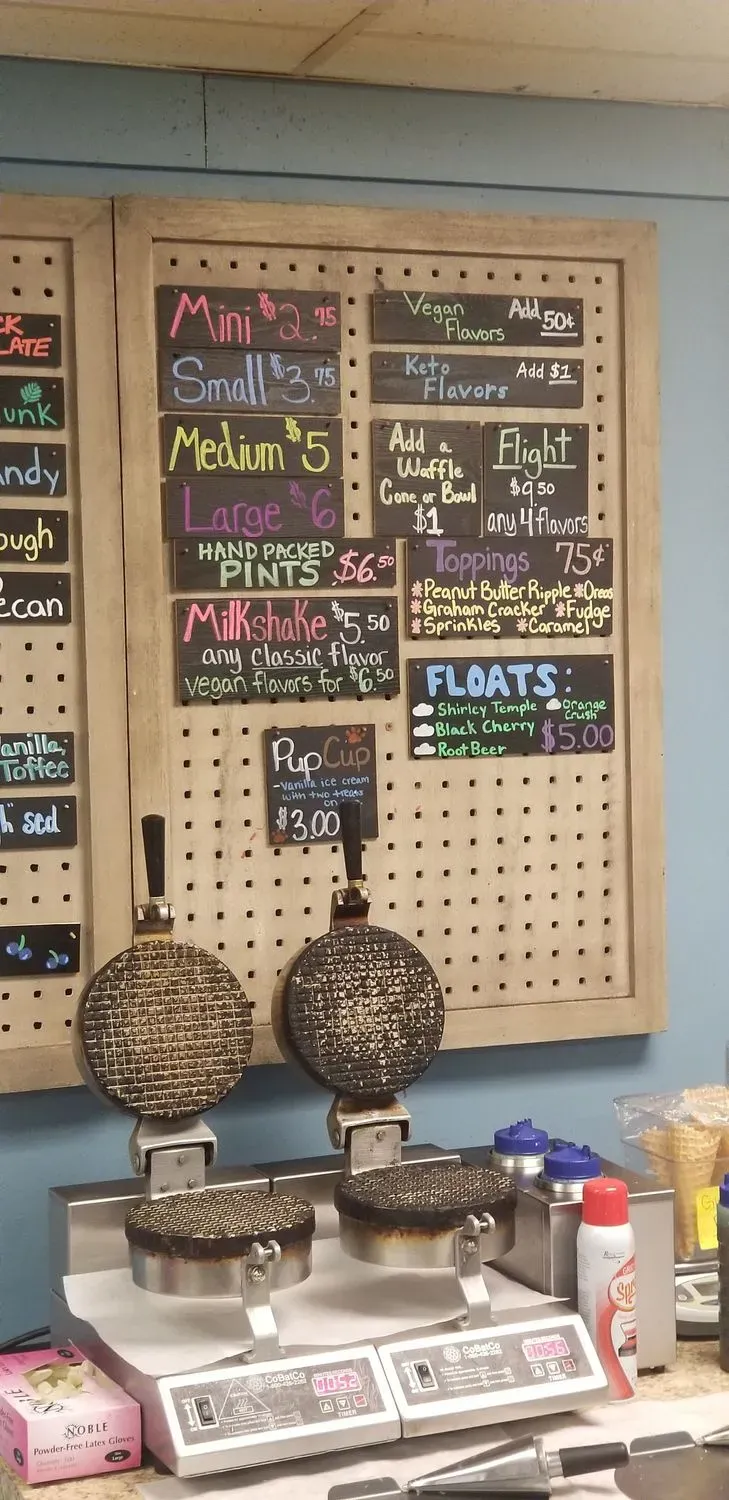 CK
LATE
unk
andy
ough
ecan
Vanilla,
Toffee
sed
Mini $2.75
Small $3.75
Medium $5
Large $6
HAND PACKED
PINTS $6.50
Milkshake $5.50
any classic flavor
vegan flavors for $6.50
Vegan
Flavors
Add 50¢
Keto
Flavors
Add $1
Add a
Waffle
Cone or Bowl
$1
Flight
$9.50
any 4 flavors
Toppings 75¢
*Peanut Butter Ripple *Oreos
*Graham Cracker *Fudge
*Sprinkles *Caramel
FLOATS:
Shirley Temple
Orange
Crush
Black Cherry
Root Beer
$5.00
Pup Cup
-Vanilla ice cream
with two treats
on
$3.00
CoBatCo
1-800-426-2282
0:52
TIMER
CoBatCo
1-800-426-2282
0:56
TIMER
NOBLE
Powder-Free Latex Gloves
Large